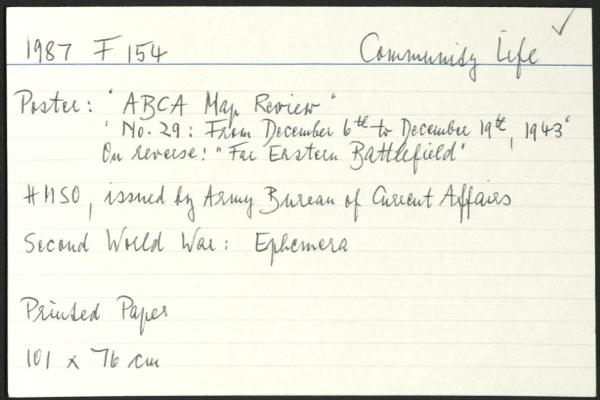 1987 F 154 Community Life
Poster: "ABCA Map Review"
"No. 29: From December 6th to December 19th, 1943"
On reverse: "Far Eastern Battlefield"
HMSO, issued by Army Bureau of Current Affairs
Second World War: Ephemera
Printed Paper
101 x 76 cm